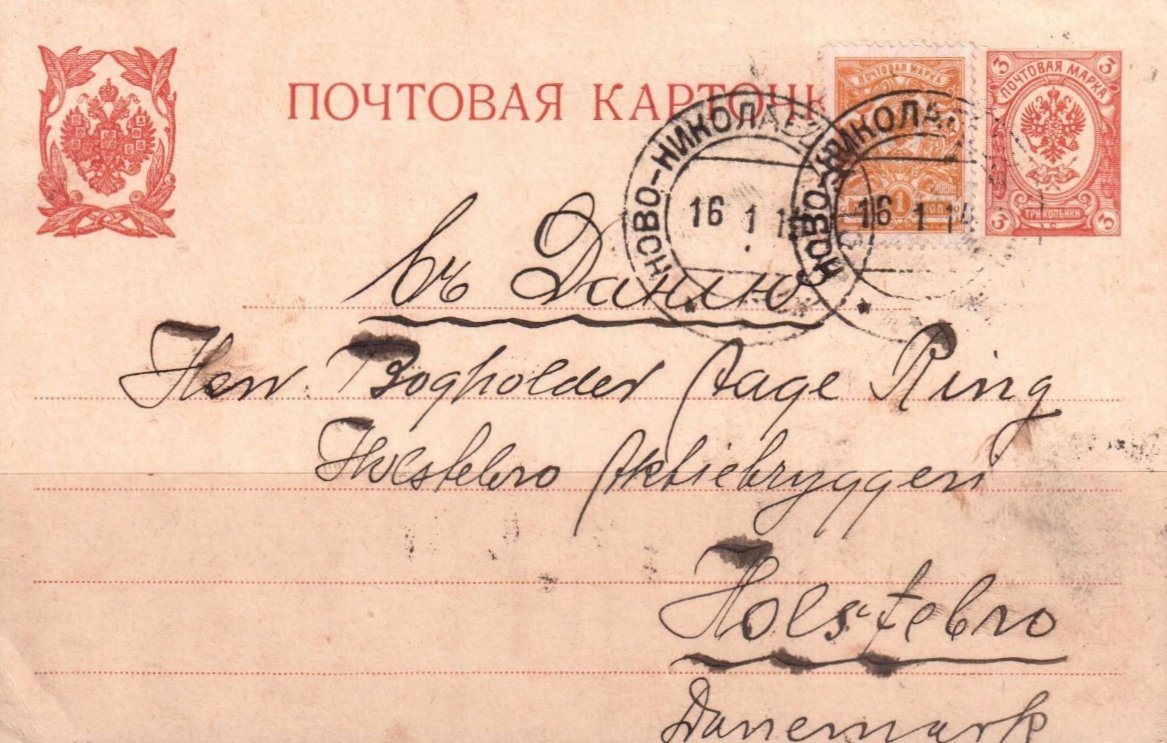 ПОЧТОВАЯ КАРТОЧК
ПОЧТОВАЯ МАРКА
1
КОП
3 3
ПОЧТОВАЯ МАРКА
3 ТРИ КОПѢЙКИ 3
НОВО-НИКОЛАЕВ
16 1 14
НОВО-НИКОЛА
16 1 14
въ Данiю
Herr Bogholder Aage Ring
Holstebro Aktiebryggeri
Holstebro
Danemark